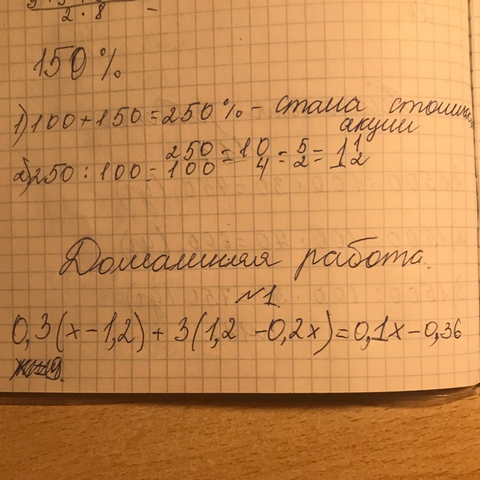 2 · 8
150%
1) 100 + 150 = 250% - стала
акции
2) 250 : 100 = 250/100 = 10/4 = 5/2 = 1 1/2
Домашняя работа.
№1
0,3(x-1,2) + 3(1,2 - 0,2x) = 0,1x - 0,36